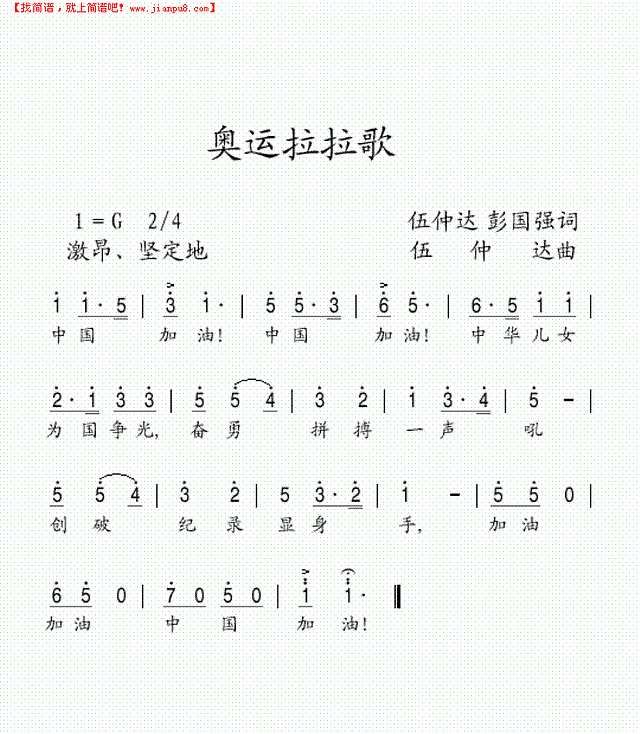 【找简谱，就上简谱吧! www.jianpu8.com】
奥运拉拉歌
1=G 2/4 伍仲达 彭国强词
激昂、坚定地 伍 仲 达曲
1 1·5 | 3 1· | 5 5·3 | 6 5· | 6·5 1 1 |
中国 加油! 中国 加油! 中华儿女
2·1 3 3 | 5 5 4 | 3 2 | 1 3·4 | 5 – |
为国争光, 奋勇 拼搏 一声 吼
5 5 4 | 3 2 | 5 3·2 | 1 – | 5 5 0 |
创破 纪录 显身 手, 加油
6 5 0 | 7 0 5 0 | 1 1· ‖
加油 中 国 加油!